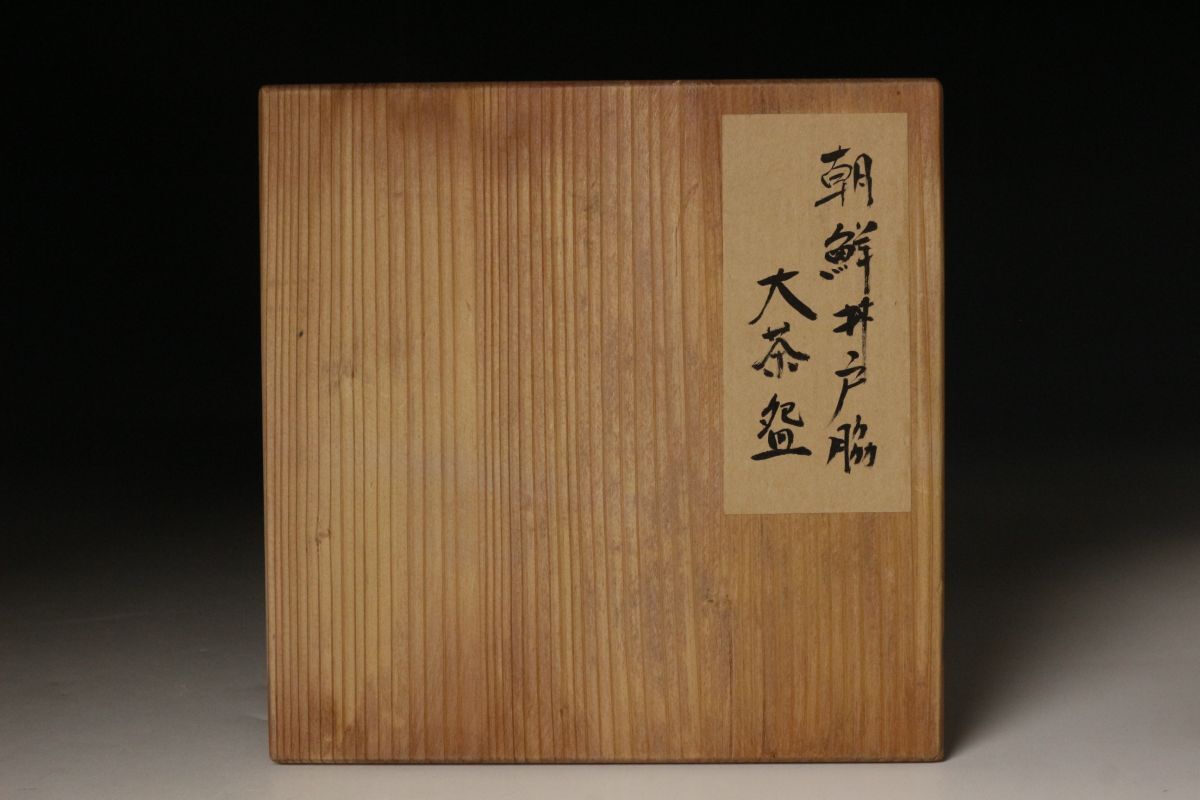 朝鮮井戸脇
大茶盌